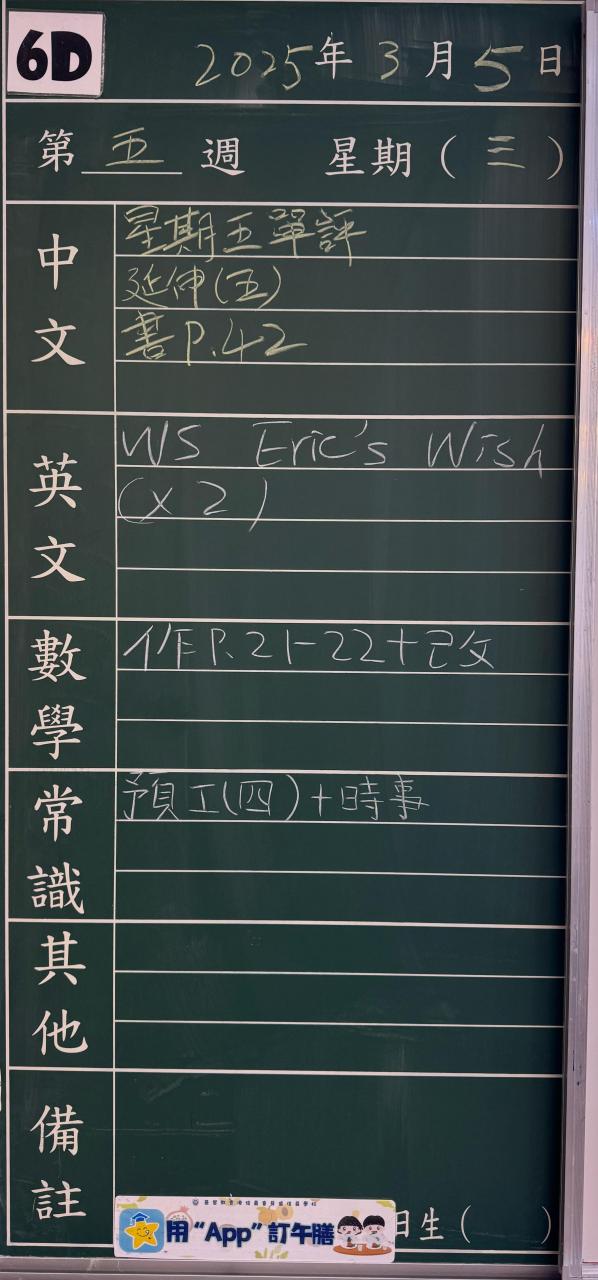 6D
2025年3月5日
第五週 星期(三)
中文
星期五單評
延伸(五)
書P.42
英文
WS Eric's Wish
(x2)
數學
作P.21-22+已改
常識
預工(四)+時事
其他
備註
用“App”訂午膳
日生( )